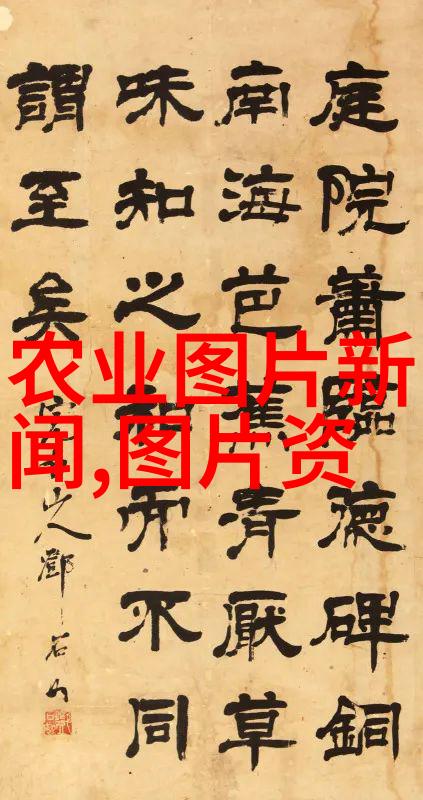 庭院蕭臨德碑銅
南海芭蕉清厭草
味知之而不同
謂至矣
山人鄧石如
农业图片新
闻,图片资